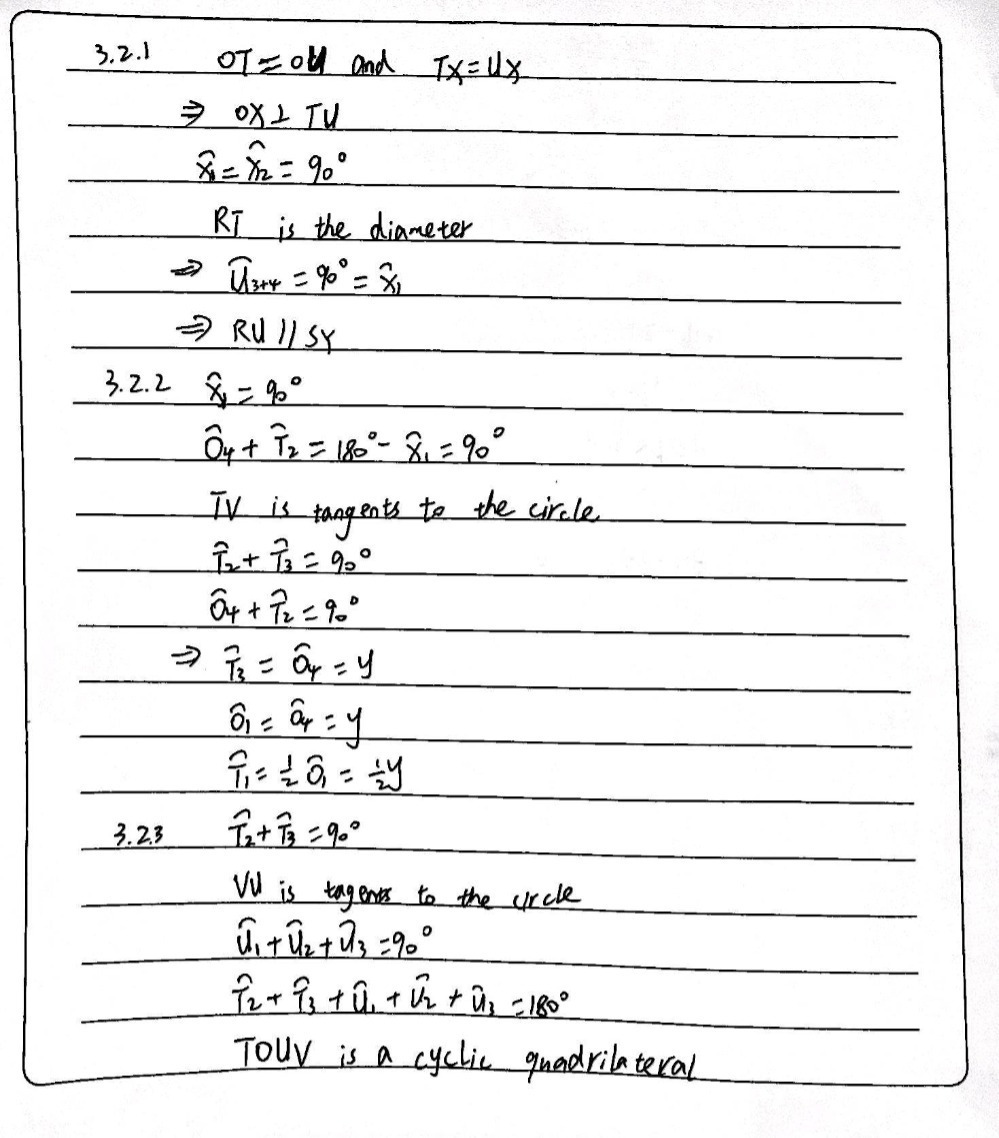 3.2.1 OT = OU and TX = UX
⇒ OX ⊥ TU
X̂₁ = X̂₂ = 90°
RT is the diameter
⇒ Û₃₊₄ = 90° = X̂₁
⇒ RU // SY
3.2.2 X̂₁ = 90°
Ô₄ + T̂₂ = 180° - X̂₁ = 90°
TV is tangents to the circle
T̂₂ + T̂₃ = 90°
Ô₄ + T̂₂ = 90°
⇒ T̂₃ = Ô₄ = y
Ô₁ = Ô₄ = y
T̂₁ = ½ Ô₁ = ½y
3.2.3 T̂₂ + T̂₃ = 90°
VU is tagents to the circle
Û₁ + Û₂ + Û₃ = 90°
T̂₂ + T̂₃ + Û₁ + Û₂ + Û₃ = 180°
TOUV is a cyclic quadrilateral